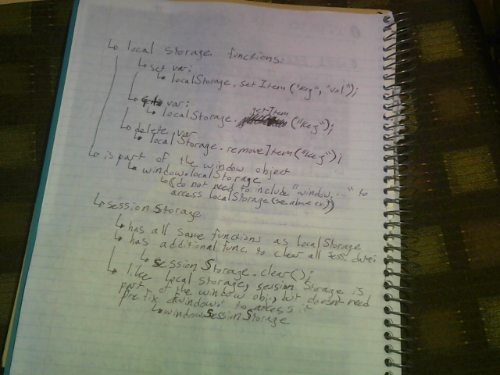 ↳ local storage functions:
↳ set var:
↳ localStorage.setItem("key", "val");
↳ var:
↳ localStorage.getItem("key");
↳ delete var
↳ localStorage.removeItem("key");
↳ is part of the window object
↳ window.localStorage
↳ (do not need to include "window." to
access localStorage (see above ex))
↳ sessionStorage
↳ has all same functions as localStorage
↳ has additional func to clear all sess. data:
↳ sessionStorage.clear();
↳ like local storage, session storage is
part of the window obj, but doesn't need
prefix "window" to access it
↳ window.sessionStorage